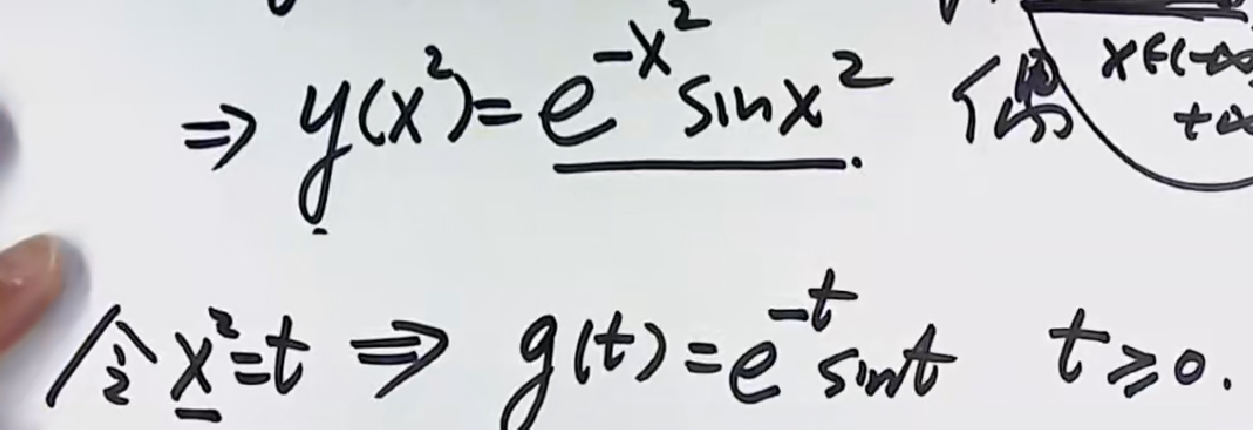 ⇒ y(x²)=e^{-x²} sinx². 偶 x∈(-∞
+∞
令 x²=t ⇒ g(t)=e^{-t} sint t≥0.